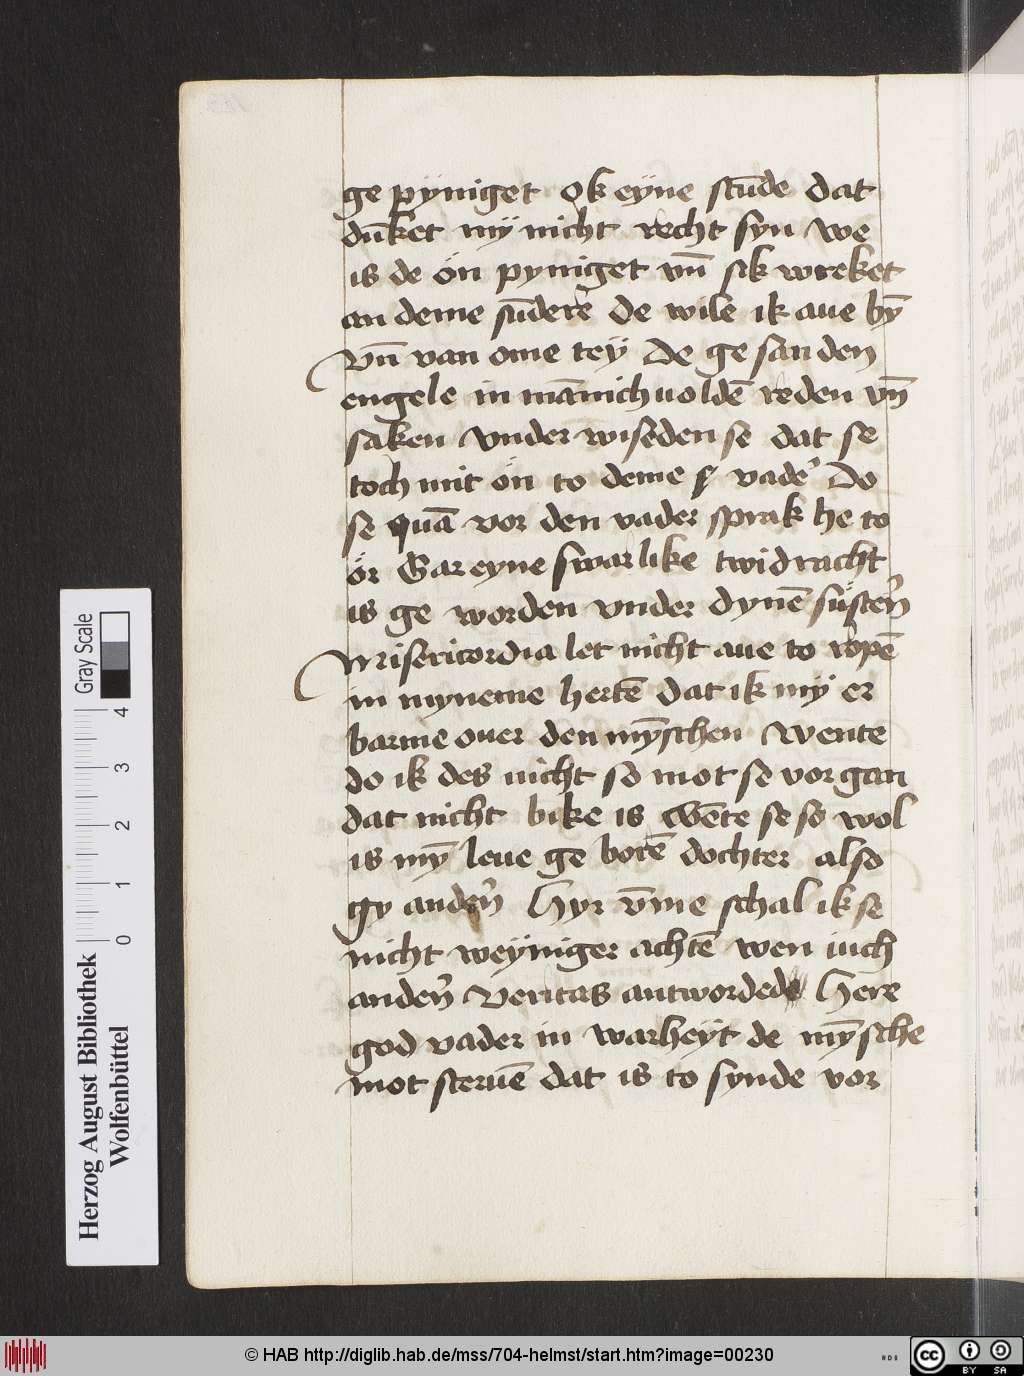 ge pÿniget ok eÿne stūde dat
dūket mÿ nicht recht syn we
is de ön pyniget vn̄ sik wreket
an deme sūdere de wile ik aue bȳ
vn̄ van ome teÿ De ge sanden
engele in mānichuoldē reden vn̄
saken vnder wiseden se dat se
toch mit ön to deme vader Do
se quā vor den vader sprak he to
ör Gar eyne swarlike twidracht
is ge worden vnder dynē süstern
Misericordia let nicht aue to ropē
in myneme hertē dat ik mÿ er
barme ouer den mȳschen wente
do ik des nicht so mot se vorgan
dat nicht bike is wēte se so wol
is mȳ leue ge borē dochter also
gy andern Hyr v̄me schal ik se
nicht weÿniger achtē wen iuch
andern veritas antworded Here
god vader in warheÿt de mȳsche
mot steruē dat is to synde vor
Herzog August Bibliothek
Wolfenbüttel
Gray Scale
0 1 2 3 4
© HAB http://diglib.hab.de/mss/704-helmst/start.htm?image=00230
HAB
cc BY SA